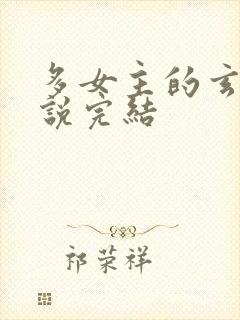 多女主的玄
説完結
祁荣祥